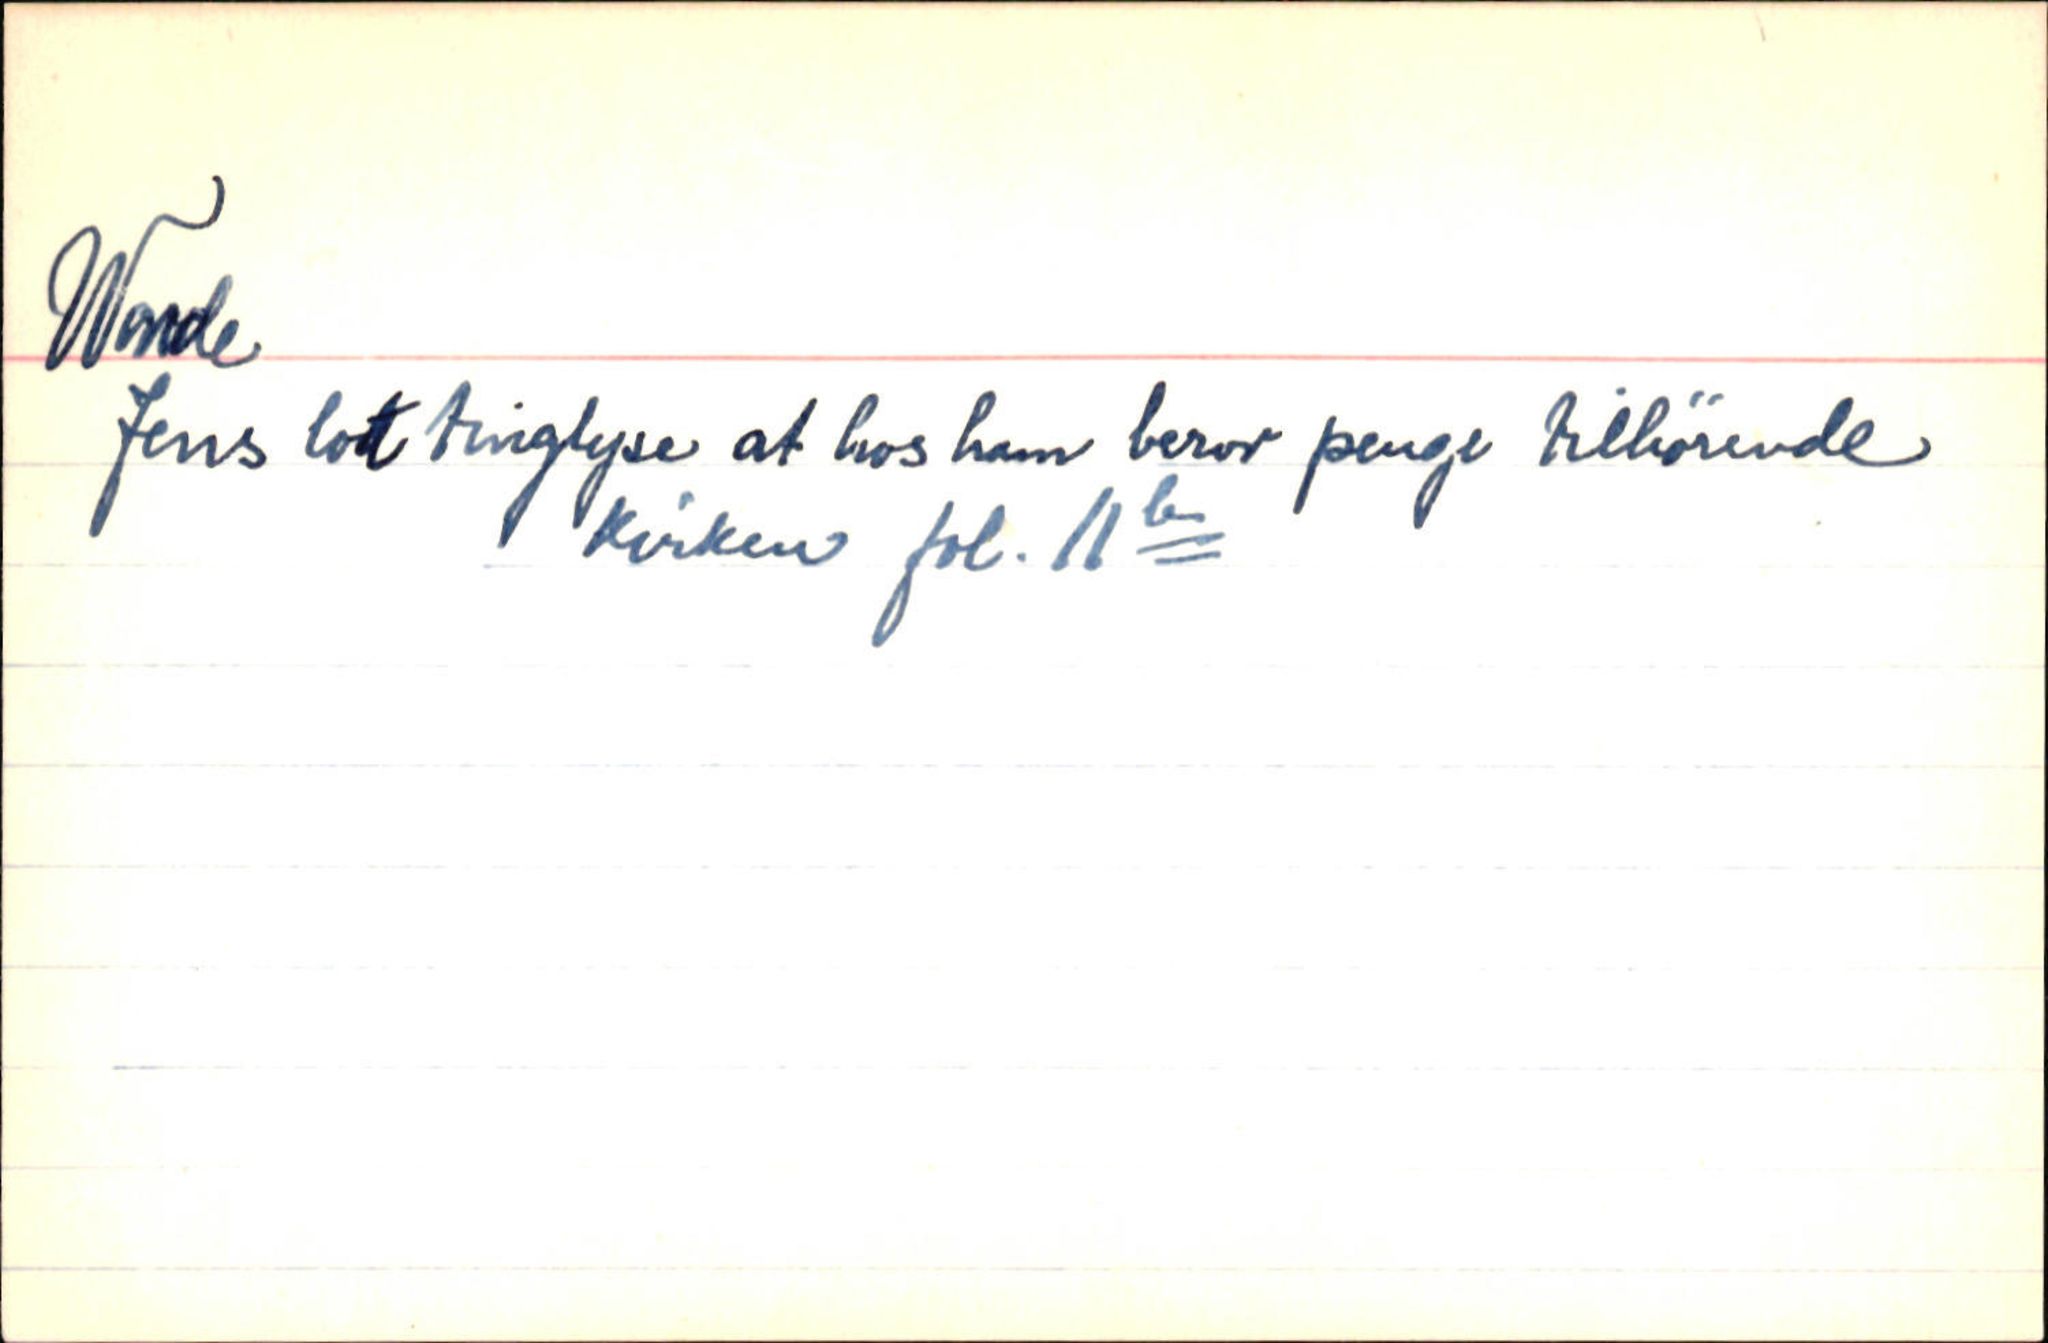 Wonde
Jens lot tinglyse at hos ham beror penge tilhörende
Kirken fol. 11b